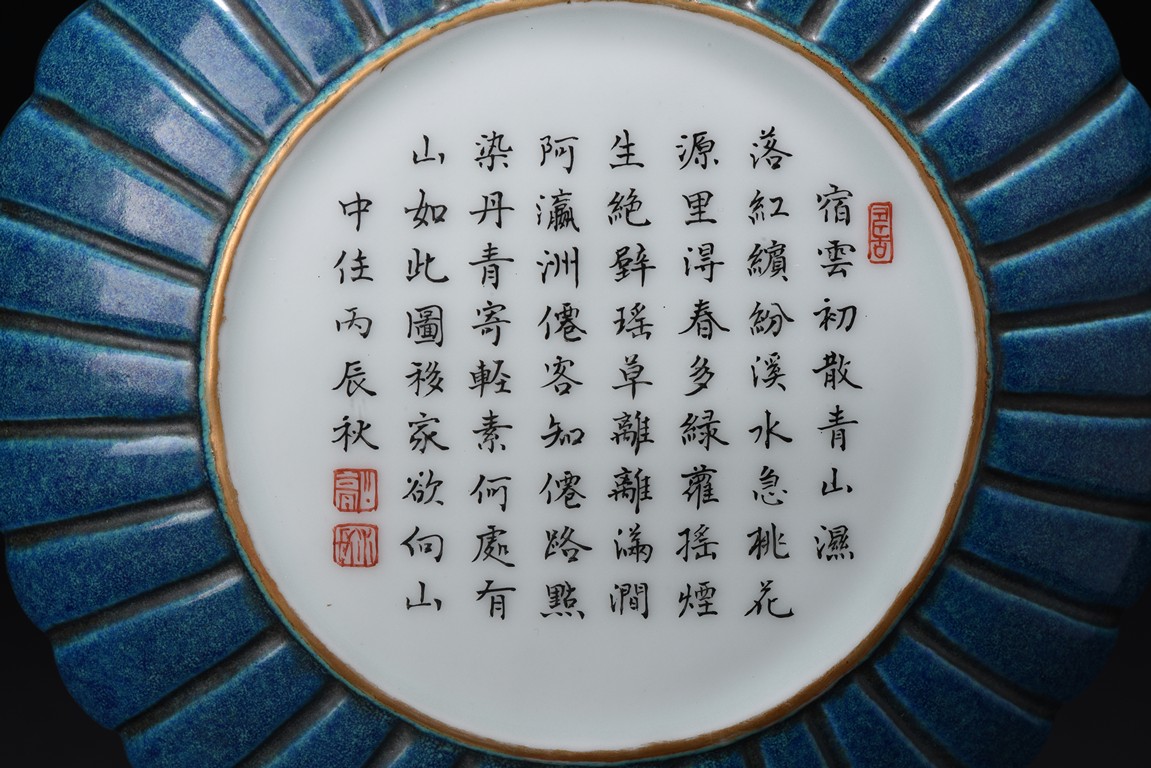 宿雲初散青山濕
落紅繽紛溪水急桃花
源里得春多綠蘿搖煙
生絕壁瑤草離離滿澗
阿瀛洲僊客知僊路點
染丹青寄輕素何處有
山如此圖移家欲向山
中住丙辰秋